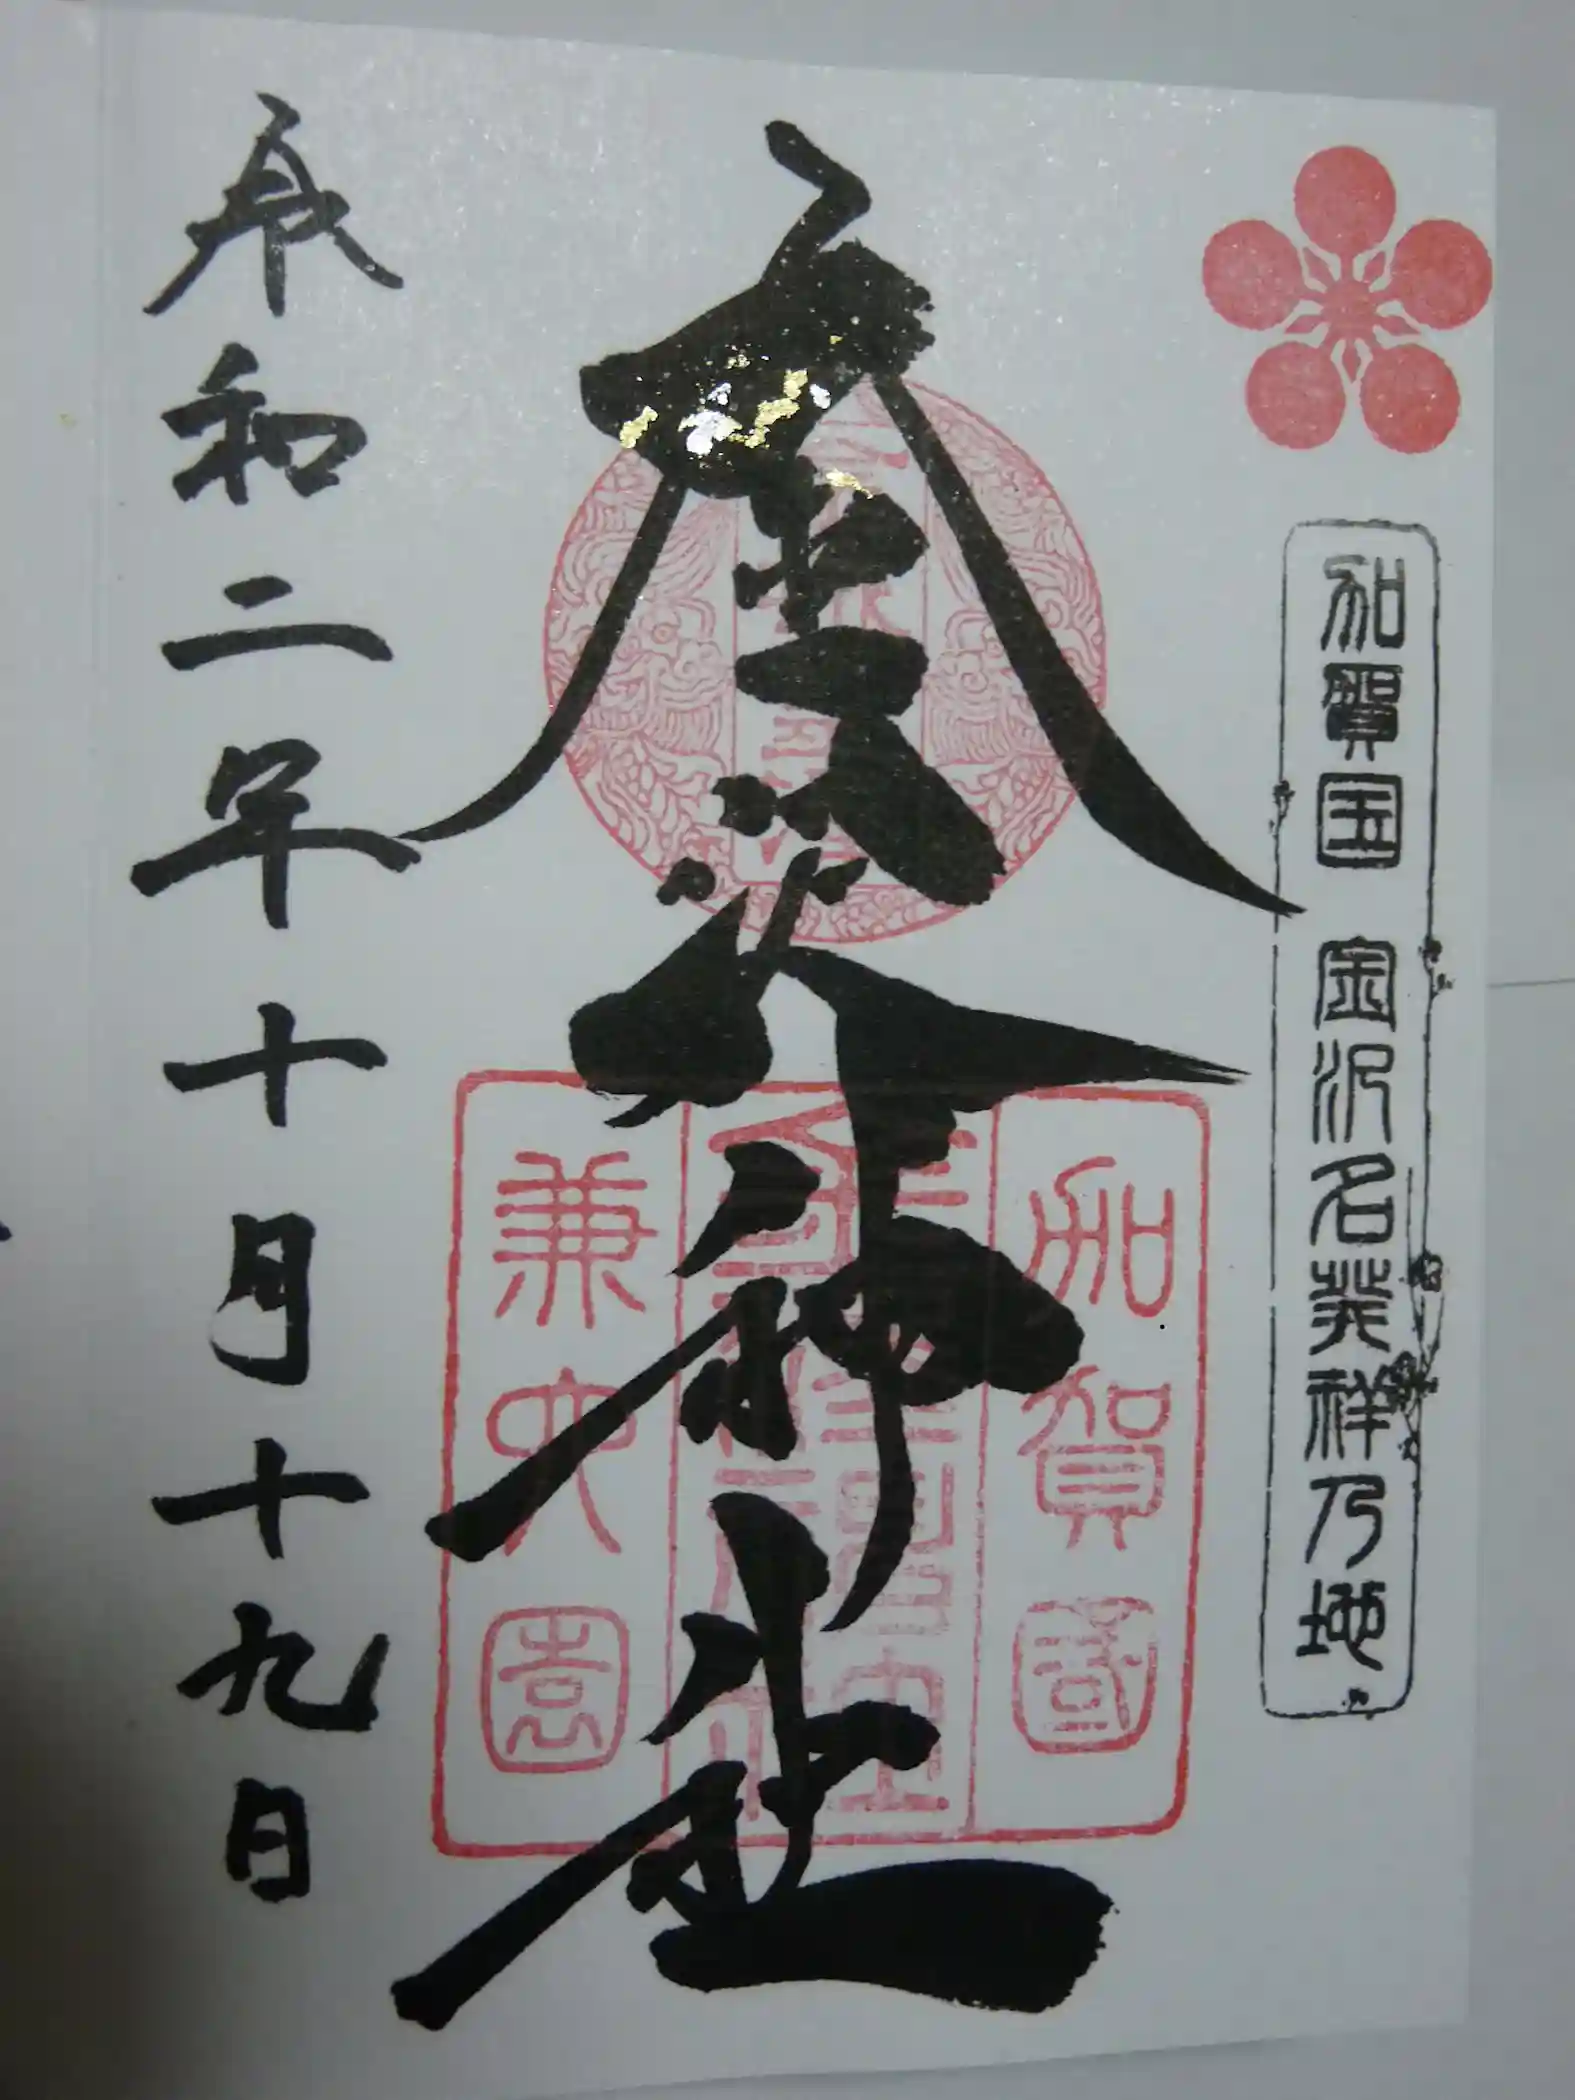 加賀国 金沢名発祥乃地
加賀國
金澤神社
兼六園
令和二年十月十九日